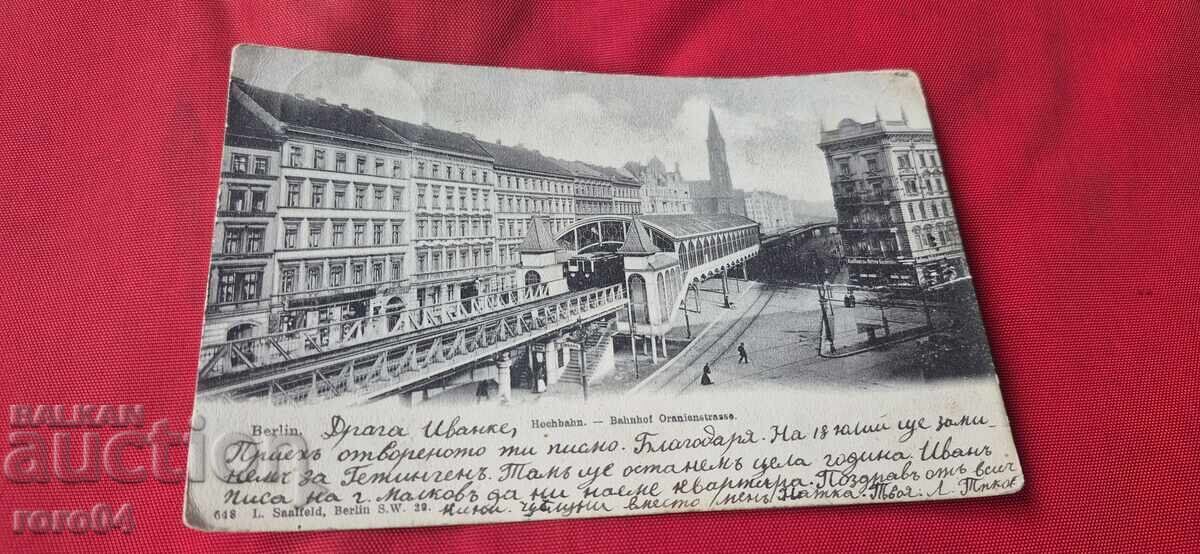 Berlin.
Hochbahn. — Bahnhof Oranienstrasse.
Драга Иванке,
Приехъ отвореното ти писмо. Благодаря. На 18 юлий ще зами-
немъ за Гетингенъ. Тамъ ще останемъ цела година. Иванъ
писа на г. Малковъ да ни наеме квартира. Поздравъ отъ всич
вместо менъ Натка. Твоя: Л.
648 L. Saalfeld, Berlin S.W. 29.
BALKAN
auction
roro04